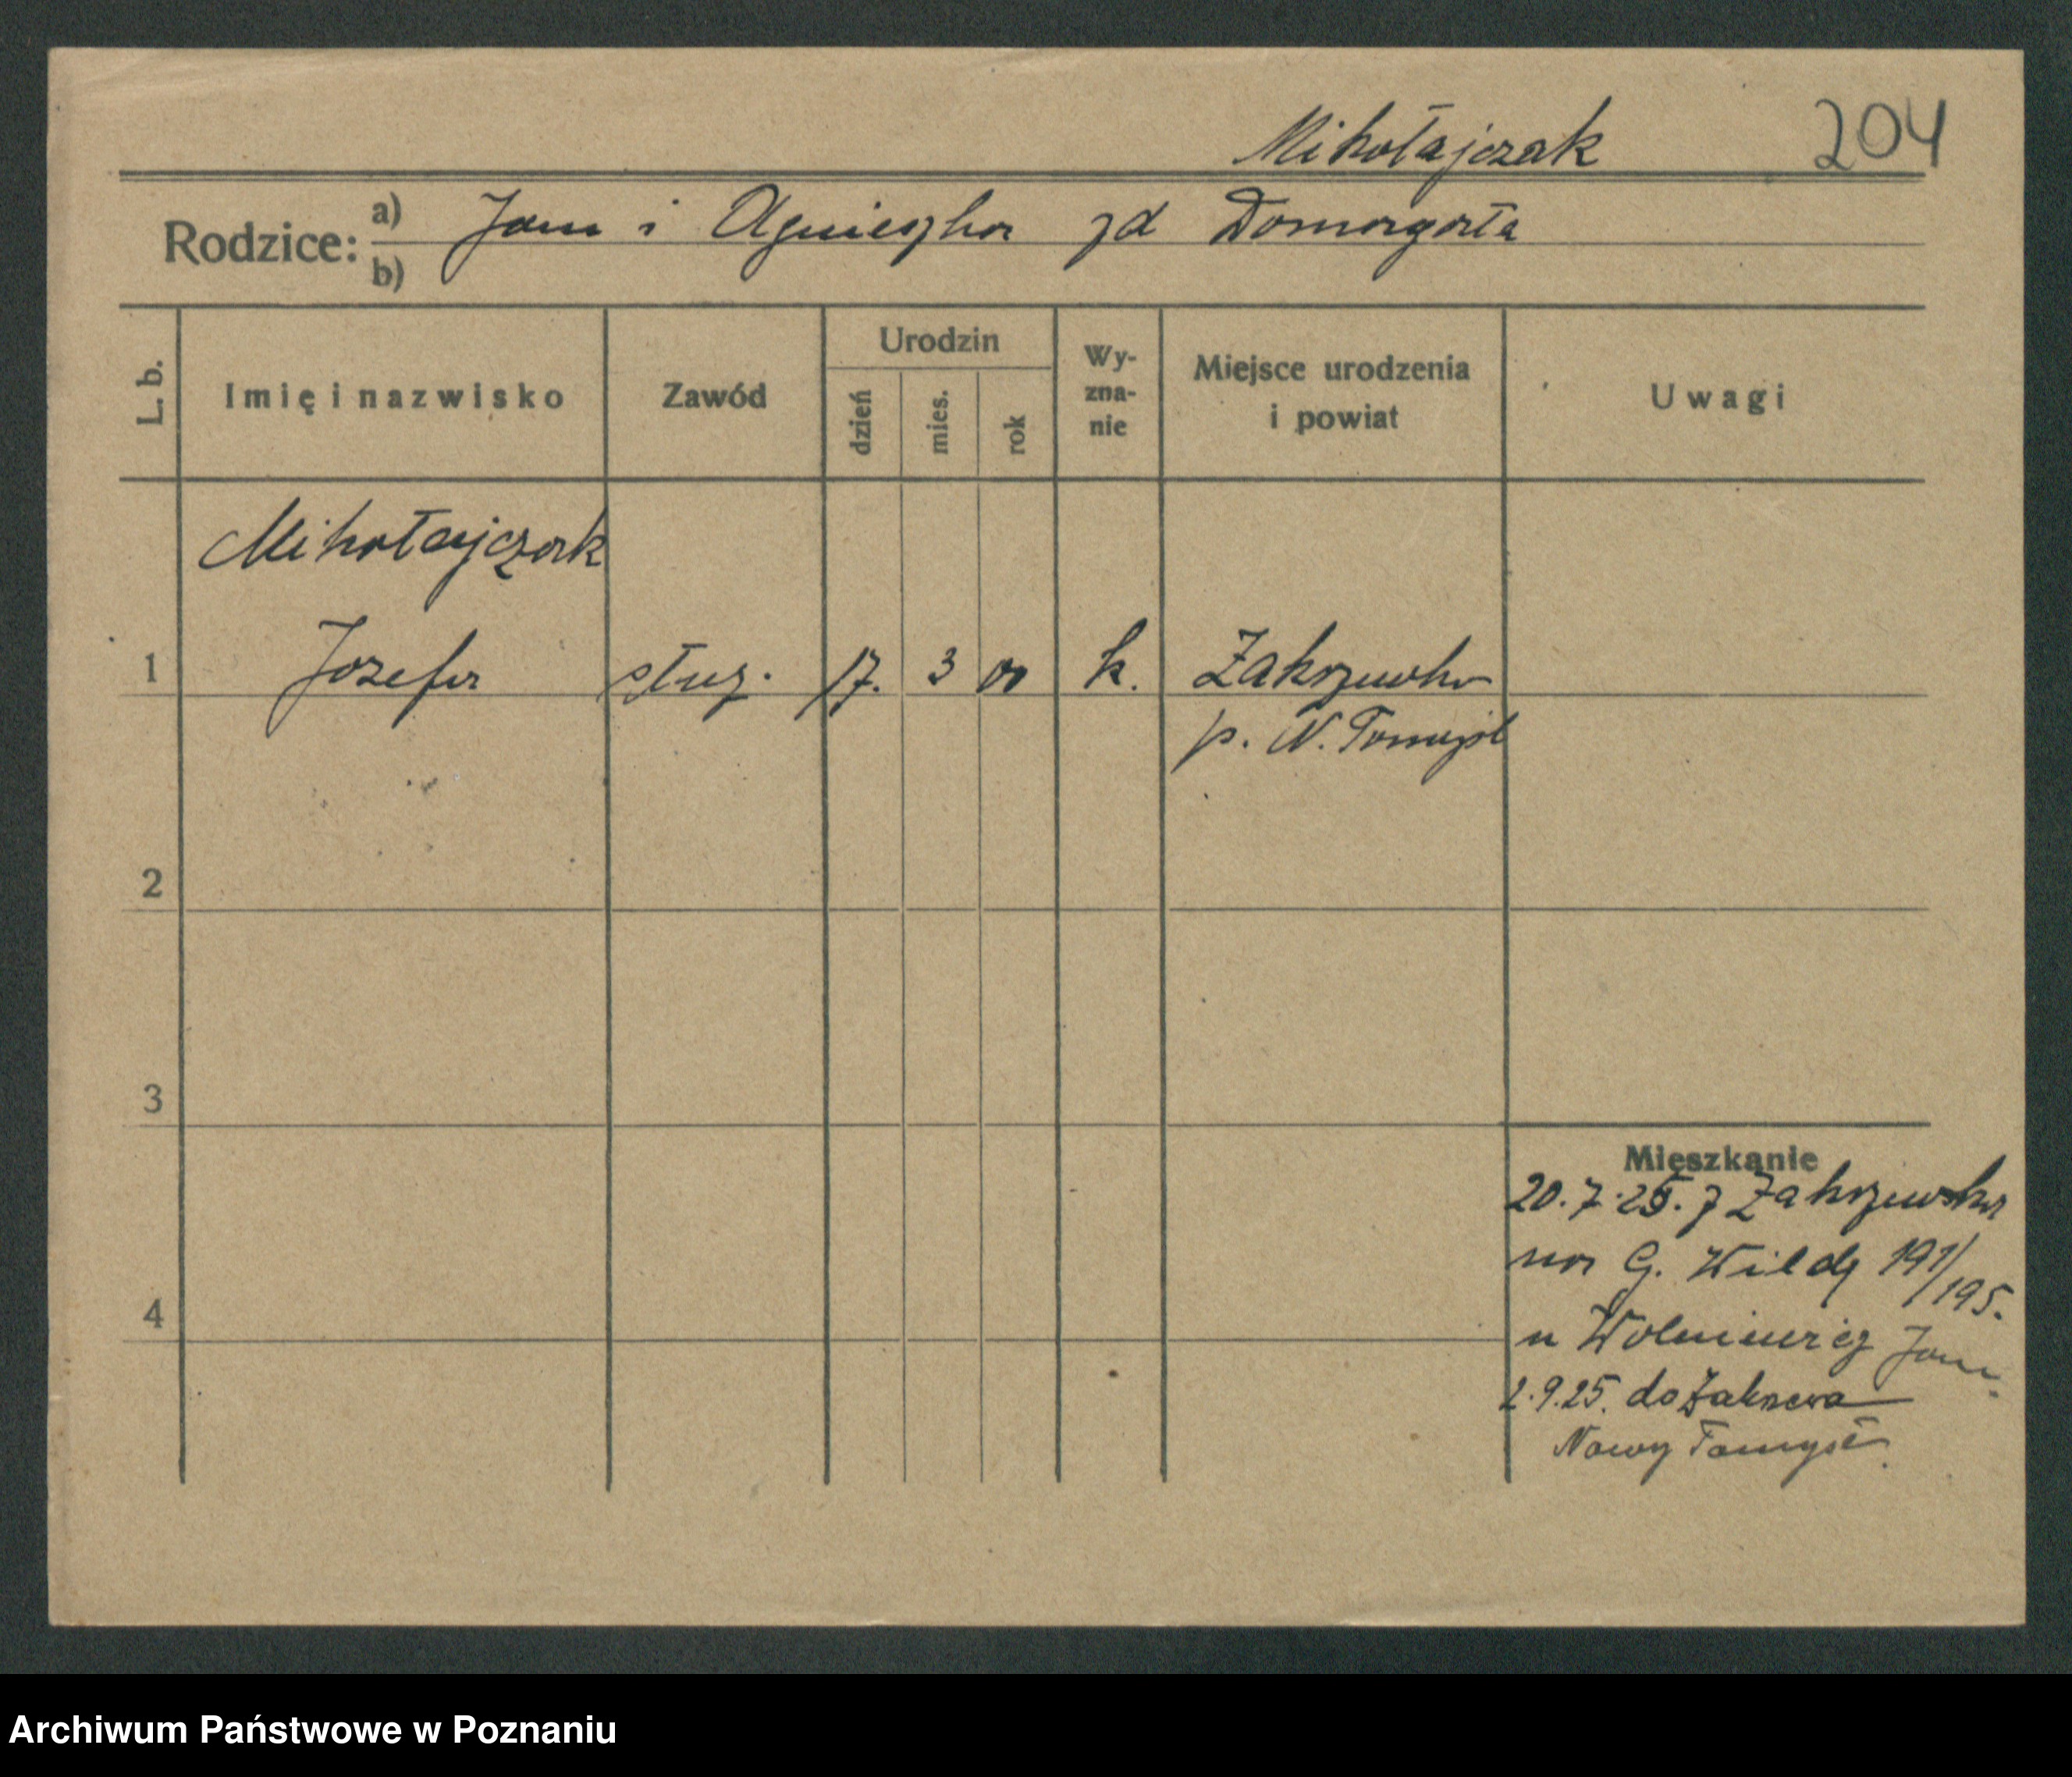 Mikołajczak 204
Rodzice: a) Jan i Agnieszka zd Domagała
b)
L. b. Imię i nazwisko Zawód Urodzin dzień mies. rok Wy-zna-nie Miejsce urodzenia i powiat Uwagi
Mikołajczak
1 Józefa służ. 17. 3 00 k. Zakrzewko
p. N. Tomyśl
2
3
Mieszkanie
20.7.25. z Zakrzewka
na G. Wildę 191/195.
4
u Woleniewicz Jan.
2.9.25. do Zakrzewa
Nowy Tomyśl.
Archiwum Państwowe w Poznaniu